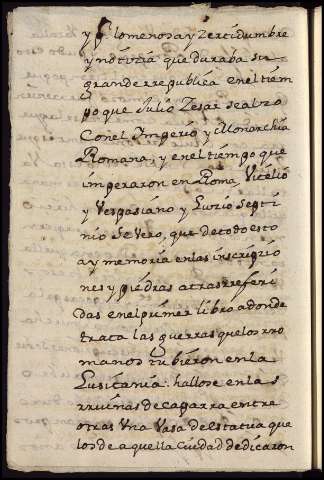 y p.r lo menos ay zertidumbre
y notizia que duraba su
grande rrepublica en el tiem
po que Julio Zesar se alzo
Con el Imperio y Monarchia
Romana, y en el tiempo que
imperaron en Roma, Vitelio
y Vespasiano y Luzio Septi
mio Severo, que de todo esto
ay memoria en las inscripzio
nes y piedras atras rreferi
das en el primer libro a donde
trata las guerras que los rro
manos tubieron en la
Lusitania: hallose en las
rruinas de Caparra entre
otras Una Vasa de estatua que
los de aquella Ciudad dedicaron